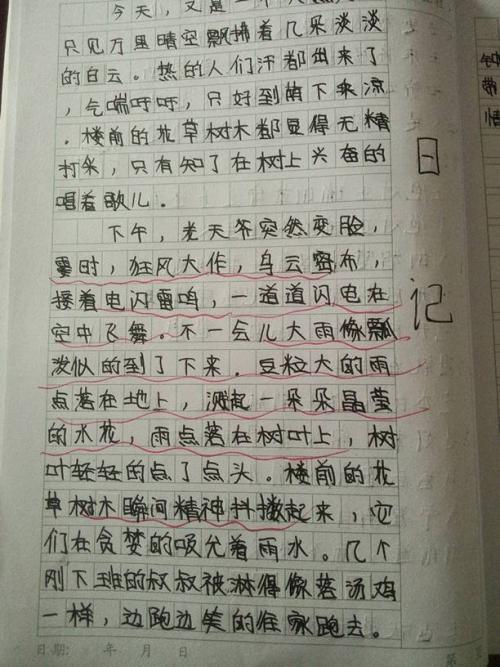 今天，又是一个
只见万里晴空飘拂着几朵淡淡
的白云。热的人们汗都出来了
，气喘吁吁，只好到荫下乘凉
．楼前的花草树木都显得无精
打采，只有知了在树上兴奋的
唱着歌儿．
下午，老天爷突然变脸，
霎时，狂风大作，乌云密布，
接着电闪雷鸣，一道道闪电在
空中飞舞。不一会儿大雨像瓢
泼似的到了下来．豆粒大的雨
点落在地上，溅起一朵朵晶莹
的水花，雨点落在树叶上，树
叶轻轻的点了点头．楼前的花
草树木瞬间精神抖擞起来，它
们在贪婪的吸允着雨水。几个
刚下班的叔叔被淋得像落汤鸡
一样，边跑边笑的往家跑去。
日记
日期： 年 月 日